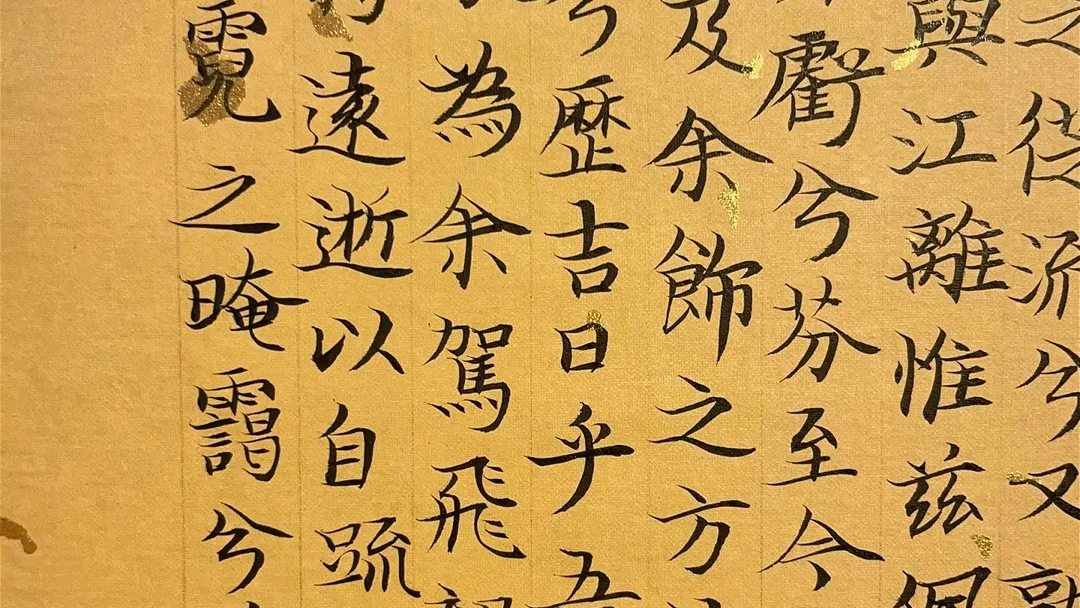 之從流兮又
與江離惟茲佩
虧兮芬至今
及余飾之方
兮歷吉日乎吾
為余駕飛
遠逝以自疏
霓之晻靄兮